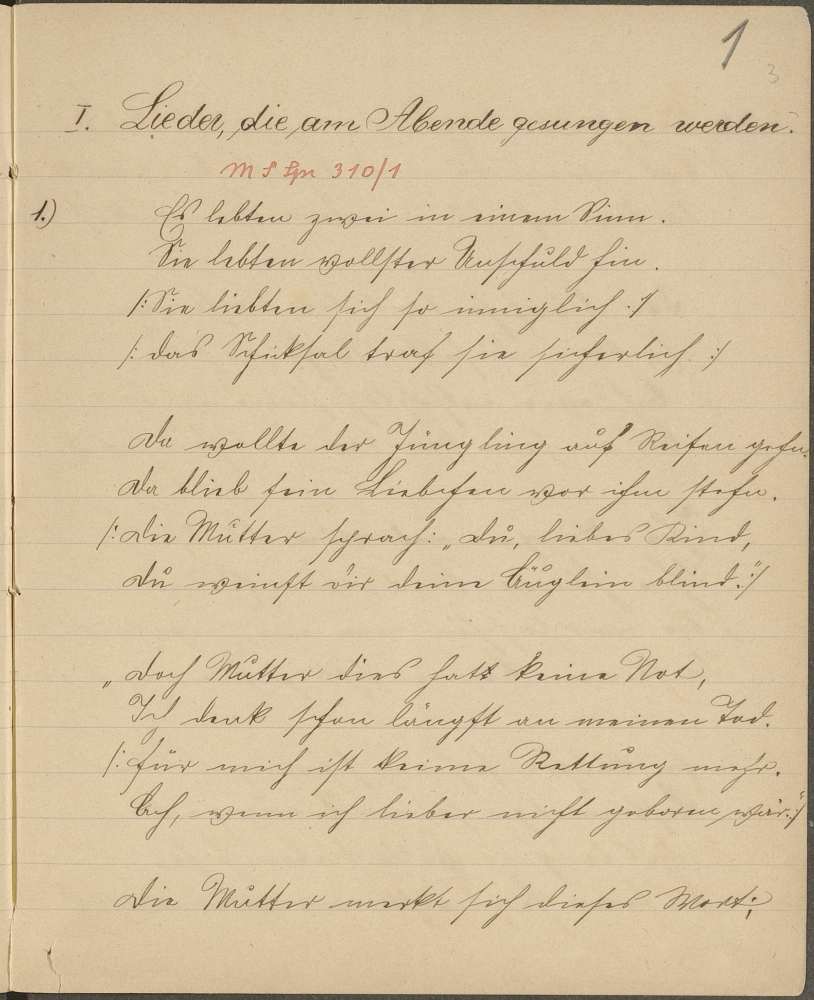 1
3
I. Lieder, die am Abende gesungen werden.
M S Lpn 310/1
1.) Es lebten zwei in einem Sinn.
Sie lebten vollster Unschuld hin.
/: Sie liebten sich so inniglich :/
/: das Schicksal traf sie sicherlich :/
Da wollte der Jüngling auf Reisen gehn.
Da blieb sein Liebchen vor ihm stehn.
/: Die Mutter sprach: „Du, liebes Kind,
Du weinst dir deine Äuglein blind." :/
„Doch Mutter dies hatt keine Not,
Ich denk schon längst an meinen Tod.
/: für mich ist keine Rettung mehr.
Ach, wenn ich lieber nicht geboren wär." :/
Die Mutter merkt sich dieses Wort;